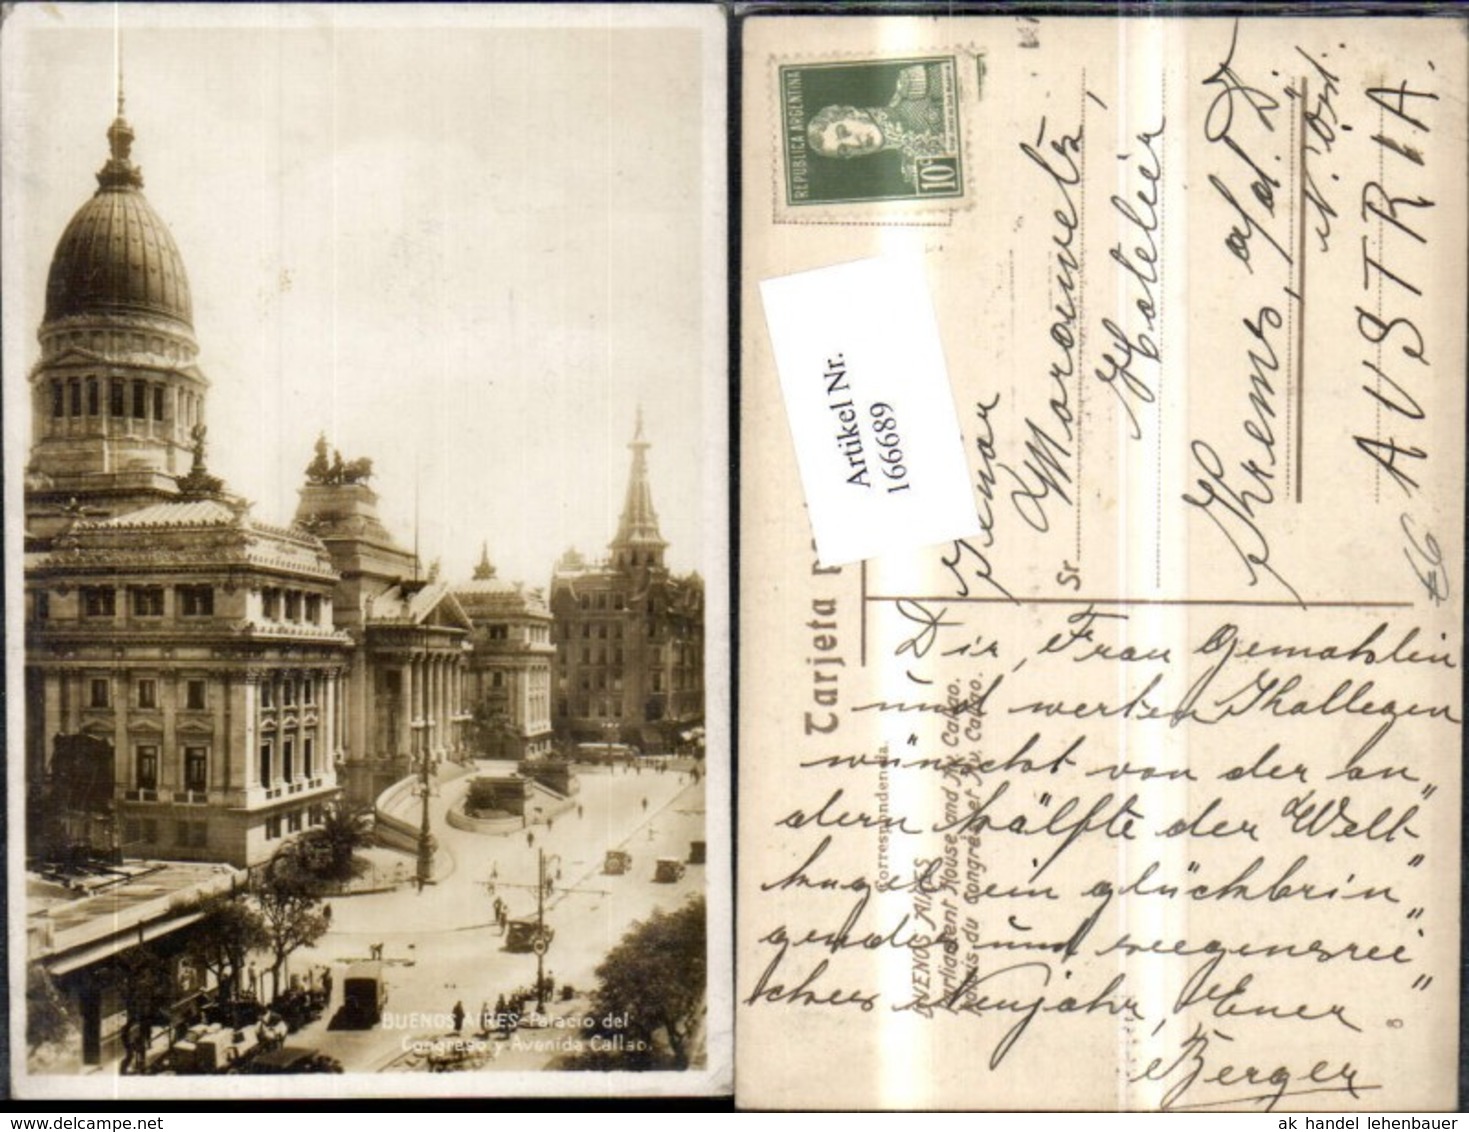 BUENOS AIRES-Palacio del
Congreso y Avenida Callao.
REPUBLICA ARGENTINA
10c
Artikel Nr.
166689
Tarjeta
Correspondencia.
BUENOS AIRES
Parliament House and Av. Callao.
Palais du Congrès et Av. Callao.
Morawetz,
Sr.
Hotelier
Krems, a/d. D.
N. Öst.
AUSTRIA.
€6
Dir, Frau Gemahlin
und werten Khollegen
wünscht von der an„
dern hälfte der Welt„
kugel ein glückbrin„
gendes und seegensrei„
ches Neujahr, Euer
Berger
8
ak handel lehenbauer
delcampe.net